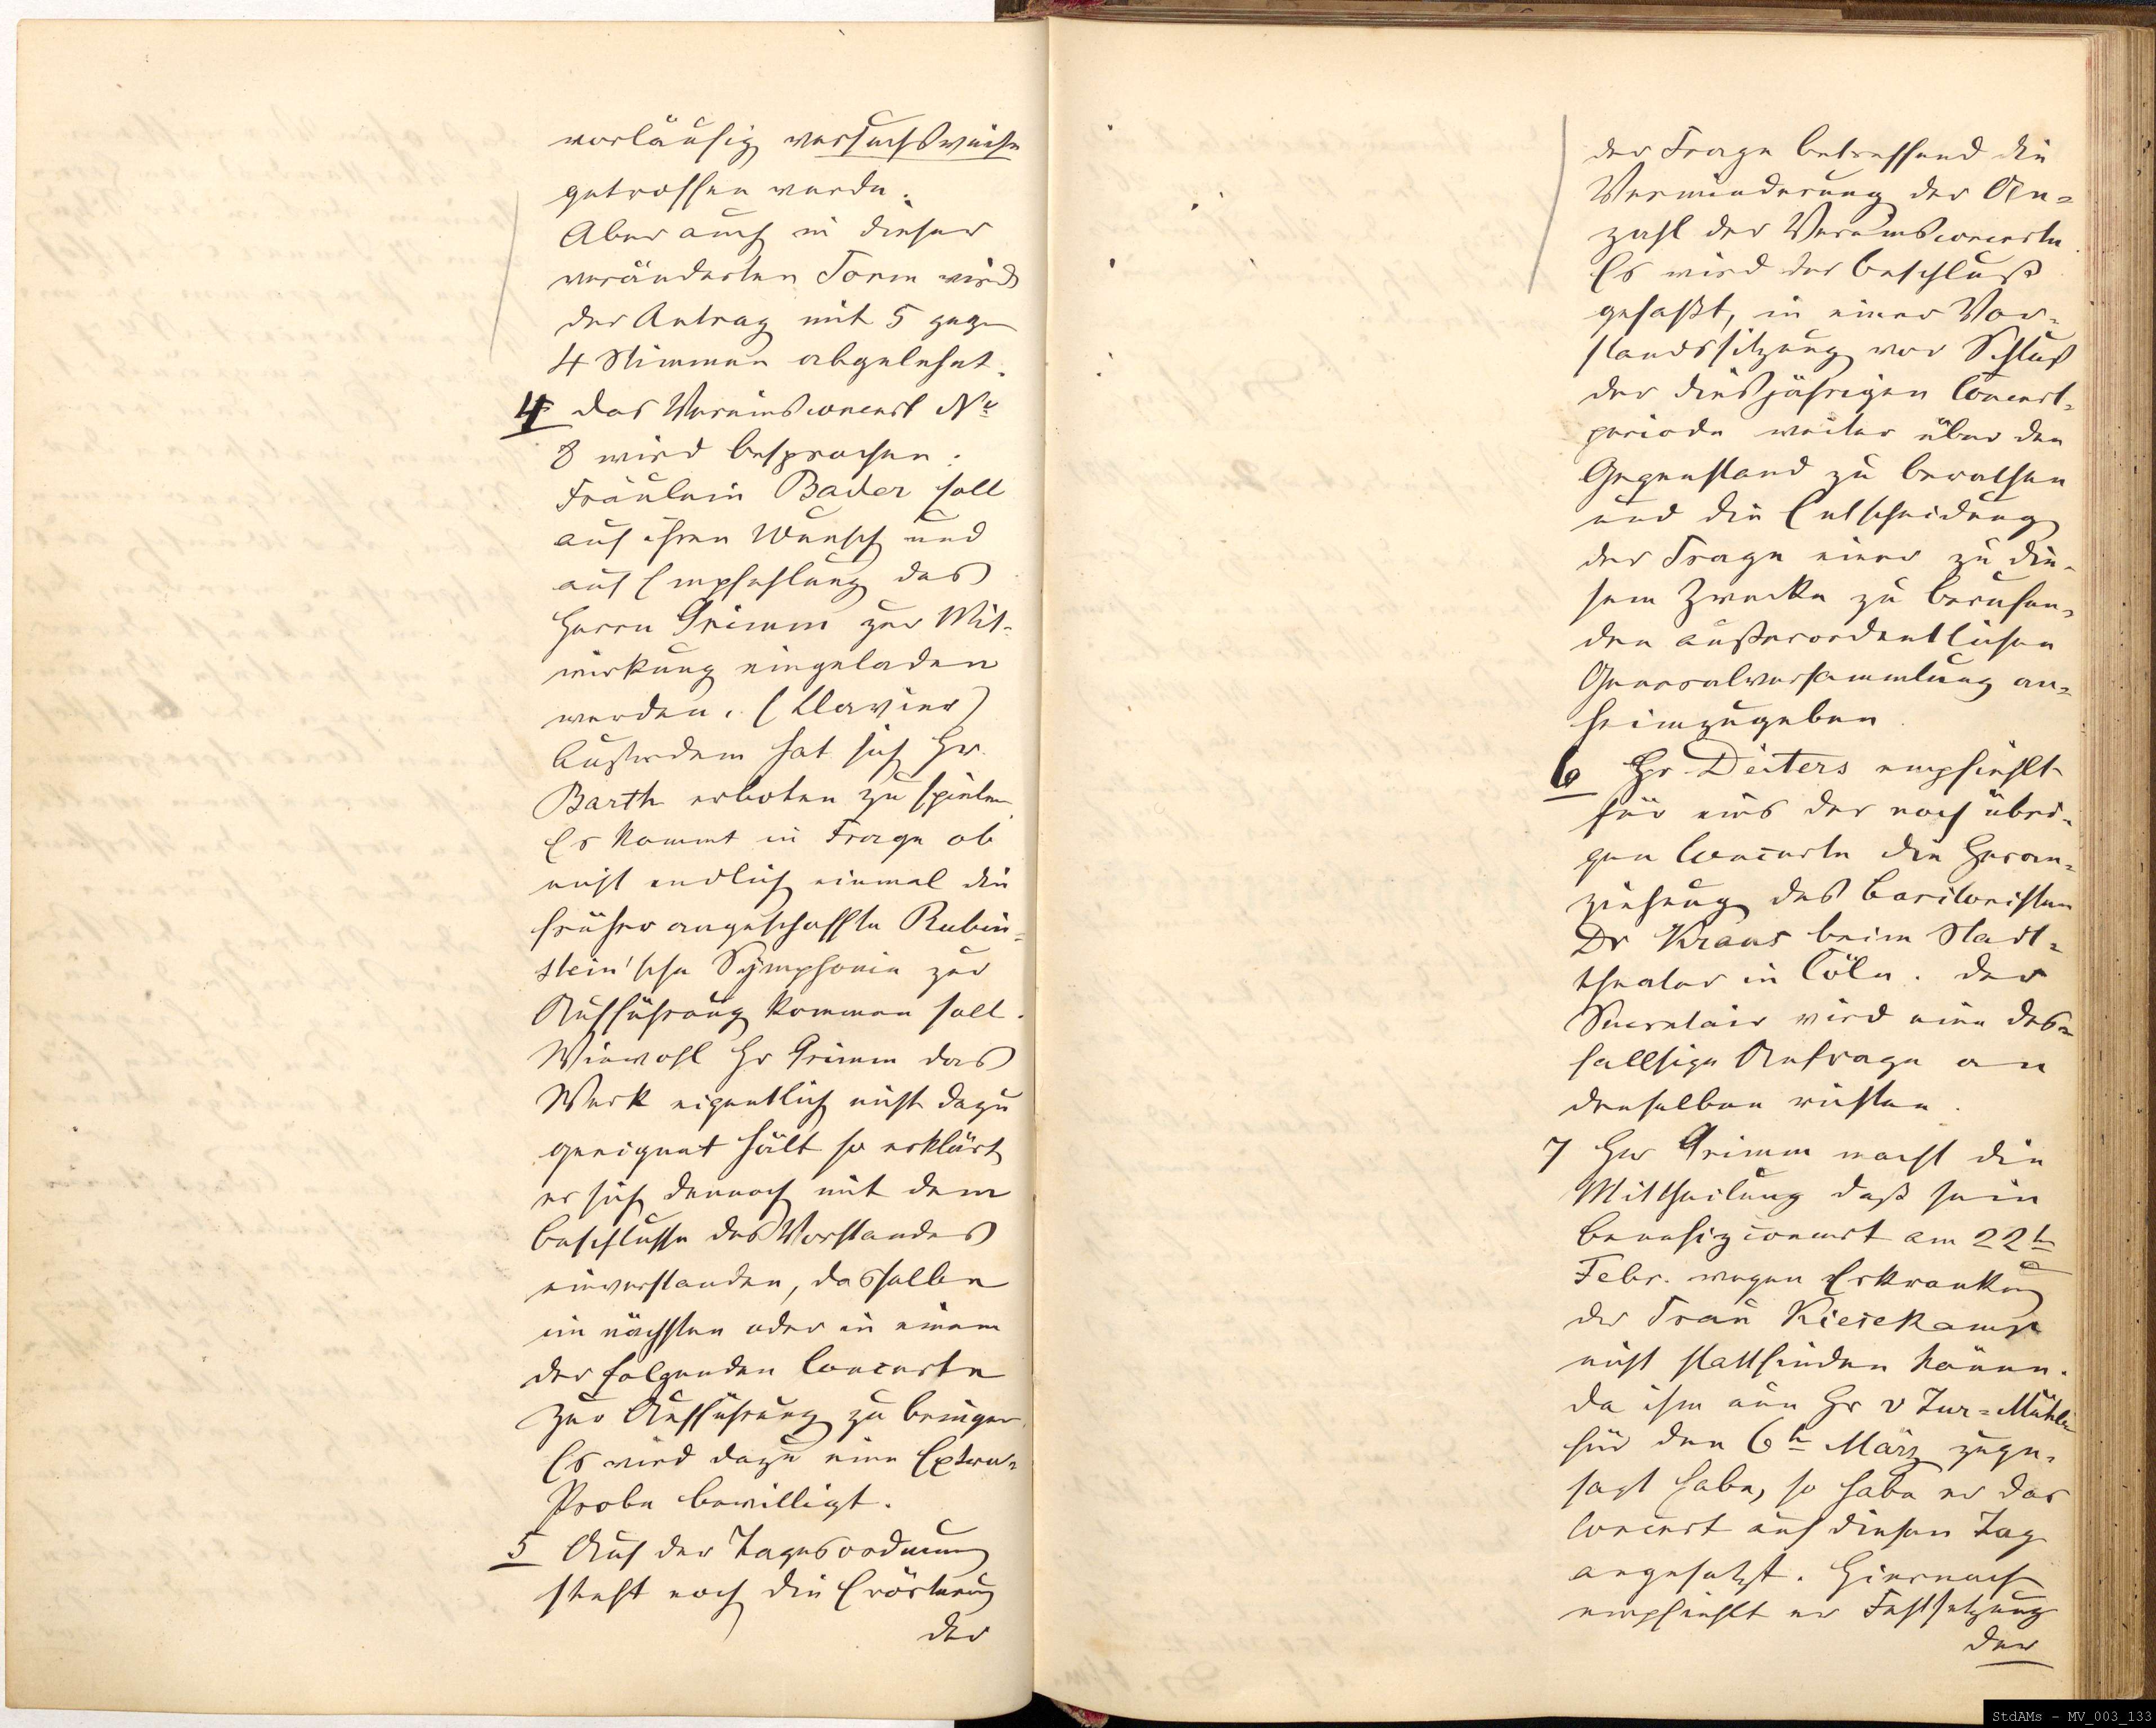 vorläufig versuchsweise
getroffen werde.
Aber auch in dieser
veränderten Form wird
der Antrag mit 5 gegen
4 Stimmen abgelehnt.
4 Das Vereinsconcert No
8 wird besprochen:
Fräulein Bader soll
auf ihren Wunsch und
auf Empfehlung des
Herrn Grimm zur Mit-
wirkung eingeladen
werden. (Klavier)
Außerdem hat sich Hr.
Barth erboten zu spielen.
Es kommt in Frage ob
nicht endlich einmal die
früher angeschaffte Rubin-
stein'sche Symphonie zur
Aufführung kommen soll.
Wiewohl Hr Grimm das
Werk eigentlich nicht dazu
geeignet hält so erklärt
er sich dennoch mit dem
Beschlusse des Vorstandes
einverstanden, dasselbe
im nächsten oder in einem
der folgenden Concerte
zur Aufführung zu bringen.
Es wird dazu eine Extra-
Probe bewilligt.
5 Auf der Tagesordnung
steht noch die Erörterung
der
der Frage betreffend die
Verminderung der An-
zahl der Vereinsconcerte.
Es wird der Beschluß
gefaßt, in einer Vor-
standssitzung vor Schluß
der diesjährigen Concert-
periode weiter über den
Gegenstand zu berathen
und die Entscheidung
der Frage einer zu die-
sem Zwecke zu berufen-
den außerordentlichen
Generalversammlung an-
heimzugeben.
6 Hr Deiters empfiehlt
für eins der noch übri-
gen Concerte die Heran-
ziehung des Baritonisten
Dr Kraus beim Stadt-
theater in Cöln. Der
Secretair wird eine des-
fallsige Anfrage an
denselben richten.
7 Herr Grimm macht die
Mittheilung daß sein
Benefizconcert am 22tn
Febr. wegen Erkrankung
der Frau Kiesekamp
nicht stattfinden könne.
Da ihm nun Hr v Zur-Mühlen
für den 6tn März zuge-
sagt habe, so habe er das
Concert auf diesen Tag
angesetzt. Hiernach
empfiehlt er Festsetzung
der
StdAMs - MV_003_133